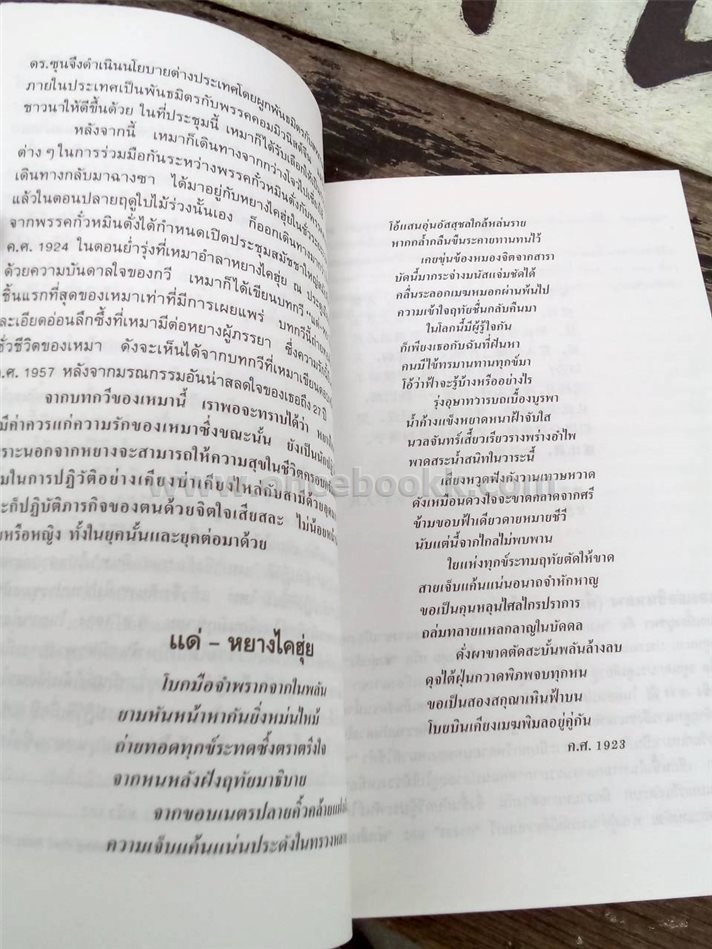 ดร.ซุนจึงดำเนินนโยบายต่างประเทศโดยผูกพันธมิตรกับ
ภายในประเทศเป็นพันธมิตรกับพรรคคอมมิวนิสต์จีน
ชาวนาให้ดีขึ้นด้วย ในที่ประชุมนี้ เหมาก็ได้รับเลือกให้เป็น
หลังจากนี้ เหมาก็เดินทางจากกว่างโจวไป
ต่าง ๆ ในการร่วมมือกันระหว่างพรรคก๊กมินตั๋งกับ
เดินทางกลับมาฉางซา ได้มาอยู่กับหยางไคฮุ่ยใน
แล้วในตอนปลายฤดูใบไม้ร่วงนั้นเอง ก็ออกเดินทาง
จากพรรคก๊กมินตั๋งได้กำหนดเปิดประชุมสมัชชาใหญ่
ค.ศ. 1924 ในตอนย่ำรุ่งที่เหมาอำลาหยางไคฮุ่ย ณ
ด้วยความบันดาลใจของกวี เหมาก็ได้เขียนบทกวี "แด่-
ชิ้นแรกที่สุดของเหมาเท่าที่มีการเผยแพร่ บทกวีนี้
ละเอียดอ่อนลึกซึ้งที่เหมามีต่อหยางผู้ภรรยา ซึ่งความรัก
ชั่วชีวิตของเหมา ดังจะเห็นได้จากบทกวีที่เหมาเขียน
ค.ศ. 1957 หลังจากมรณกรรมอันน่าสลดใจของเธอถึง 27 ปี
จากบทกวีของเหมานี้ เราพอจะทราบได้ว่า
มีค่าควรแก่ความรักของเหมาซึ่งขณะนั้น ยังเป็น
เราะนอกจากหยางจะสามารถให้ความสุขในชีวิต
มในการปฏิวัติอย่างเคียงบ่าเคียงไหล่กับสามีด้วย
ะก็ปฏิบัติภารกิจของตนด้วยจิตใจเสียสละ ไม่น้อย
ยหรือหญิง ทั้งในยุคนั้นและยุคต่อมาด้วย
แด่ – หยางไคฮุ่ย
โบกมือจำพรากจากในพลัน
ยามหันหน้าหากันยิ่งหม่นไหม้
ถ่ายทอดทุกข์ระทดซึ้งตราตรึงใจ
จากหนหลังฝังฤทัยมาธิบาย
จากขอบเนตรปลายคิ้วคล้าย
ความเจ็บแค้นแน่นประดังในทรวง
โอ้แสนอุ่นอัสสุชลใกล้หล่นราย
หากกล้ำกลืนขืนระคายทานทนไว้
เคยขุ่นข้องหมองจิตจากสารา
บัดนี้มากระจ่างมนัสแจ่มชัดได้
คลื่นระลอกเมฆหมอกผ่านพ้นไป
ความเข้าใจฤทัยชื่นกลับคืนมา
ในโลกนี้มีผู้รู้ใจกัน
ก็เพียงเธอกับฉันที่ฝันหา
คนมีไข้ทรมานทานทุกข์มา
โอ้ว่าฟ้าจะรู้บ้างหรืออย่างไร
รุ่งอุษาทวารบถเบื้องบูรพา
น้ำค้างแข็งหยาดหนาฟ้าจับใส
นวลจันทร์เสี้ยวเรียวรางพร่างอำไพ
พาดสระน้ำสนิทในวาระนี้
เสียงหวูดฟังกังวานแทบหวาด
ดังเหมือนดวงใจจะขาดกลาดจากศรี
ข้ามขอบฟ้าเดียวดายหมายชีวี
นับแต่นี้จากไกลไม่พบพาน
ใยแห่งทุกข์ระทมฤทัยตัดให้ขาด
สายเจ็บแค้นแน่นอนาถจำหักหาญ
ขอเป็นคุนหลุนไศลไกรปราการ
ถล่มทลายแหลกลาญในบัดดล
ดั่งผาขาดตัดสะบั้นพลันล้างลบ
ดุจไต้ฝุ่นกวาดพิภพจบทุกหน
ขอเป็นสองสกุณาเหินฟ้าบน
โบยบินเคียงเมฆพิมลอยู่คู่กัน
ค.ศ. 1923